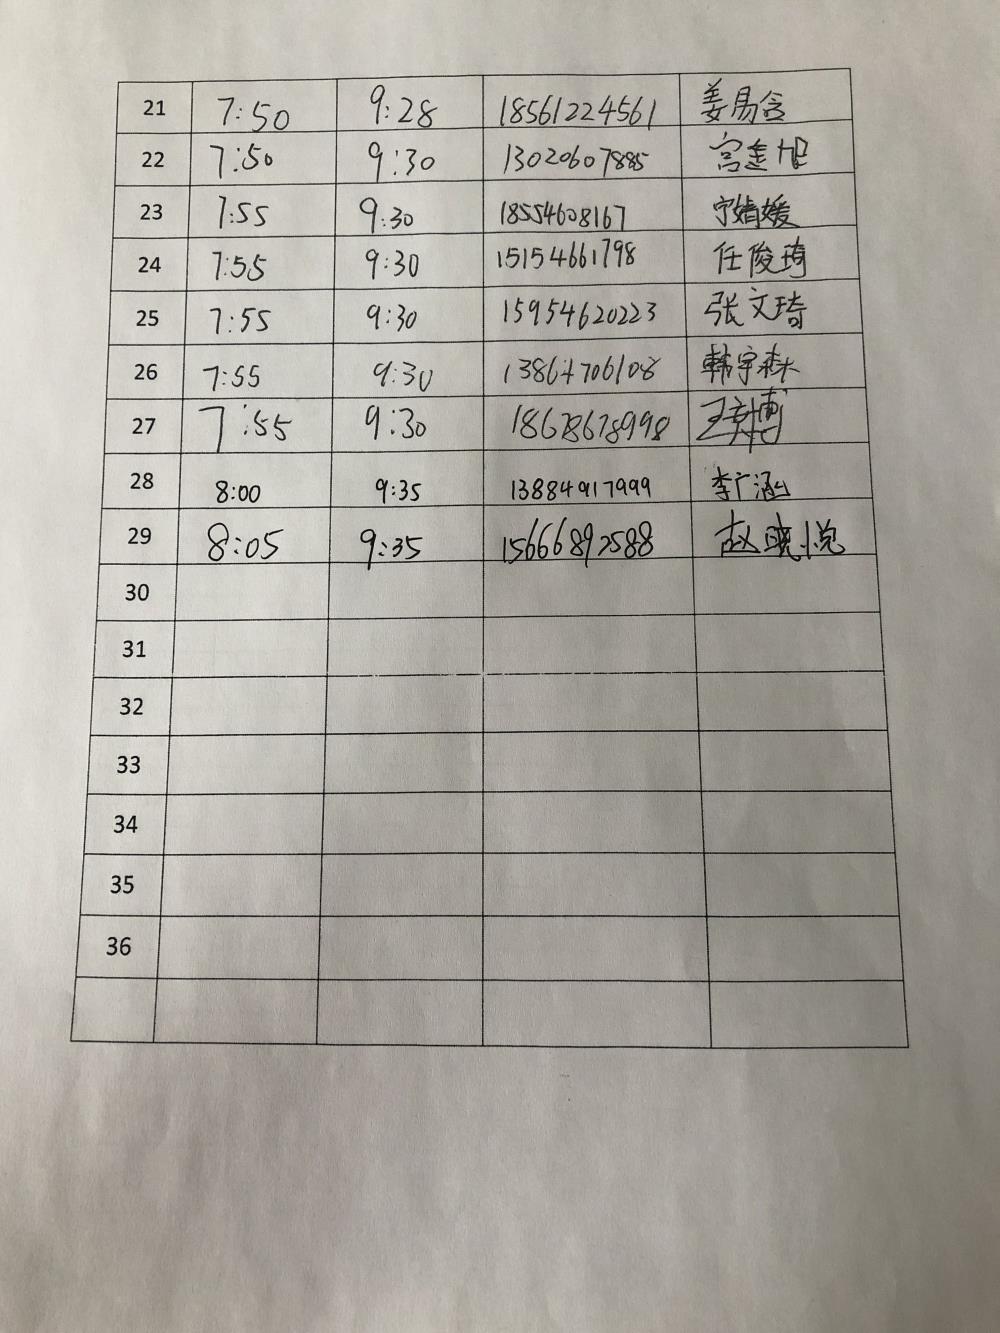 21 7:50 9:28 18561224561 姜易含
22 7:50 9:30 13020607885
23 7:55 9:30 18554608167 宁婧媛
24 7:55 9:30 15154661798 任俊琦
25 7:55 9:30 15954620223 张文琦
26 7:55 9:30 13864706108 韩宇森
27 7:55 9:30 18678678998
28 8:00 9:35 13884917999 李广涵
29 8:05 9:35 15666892588 赵晓悦
30
31
32
33
34
35
36